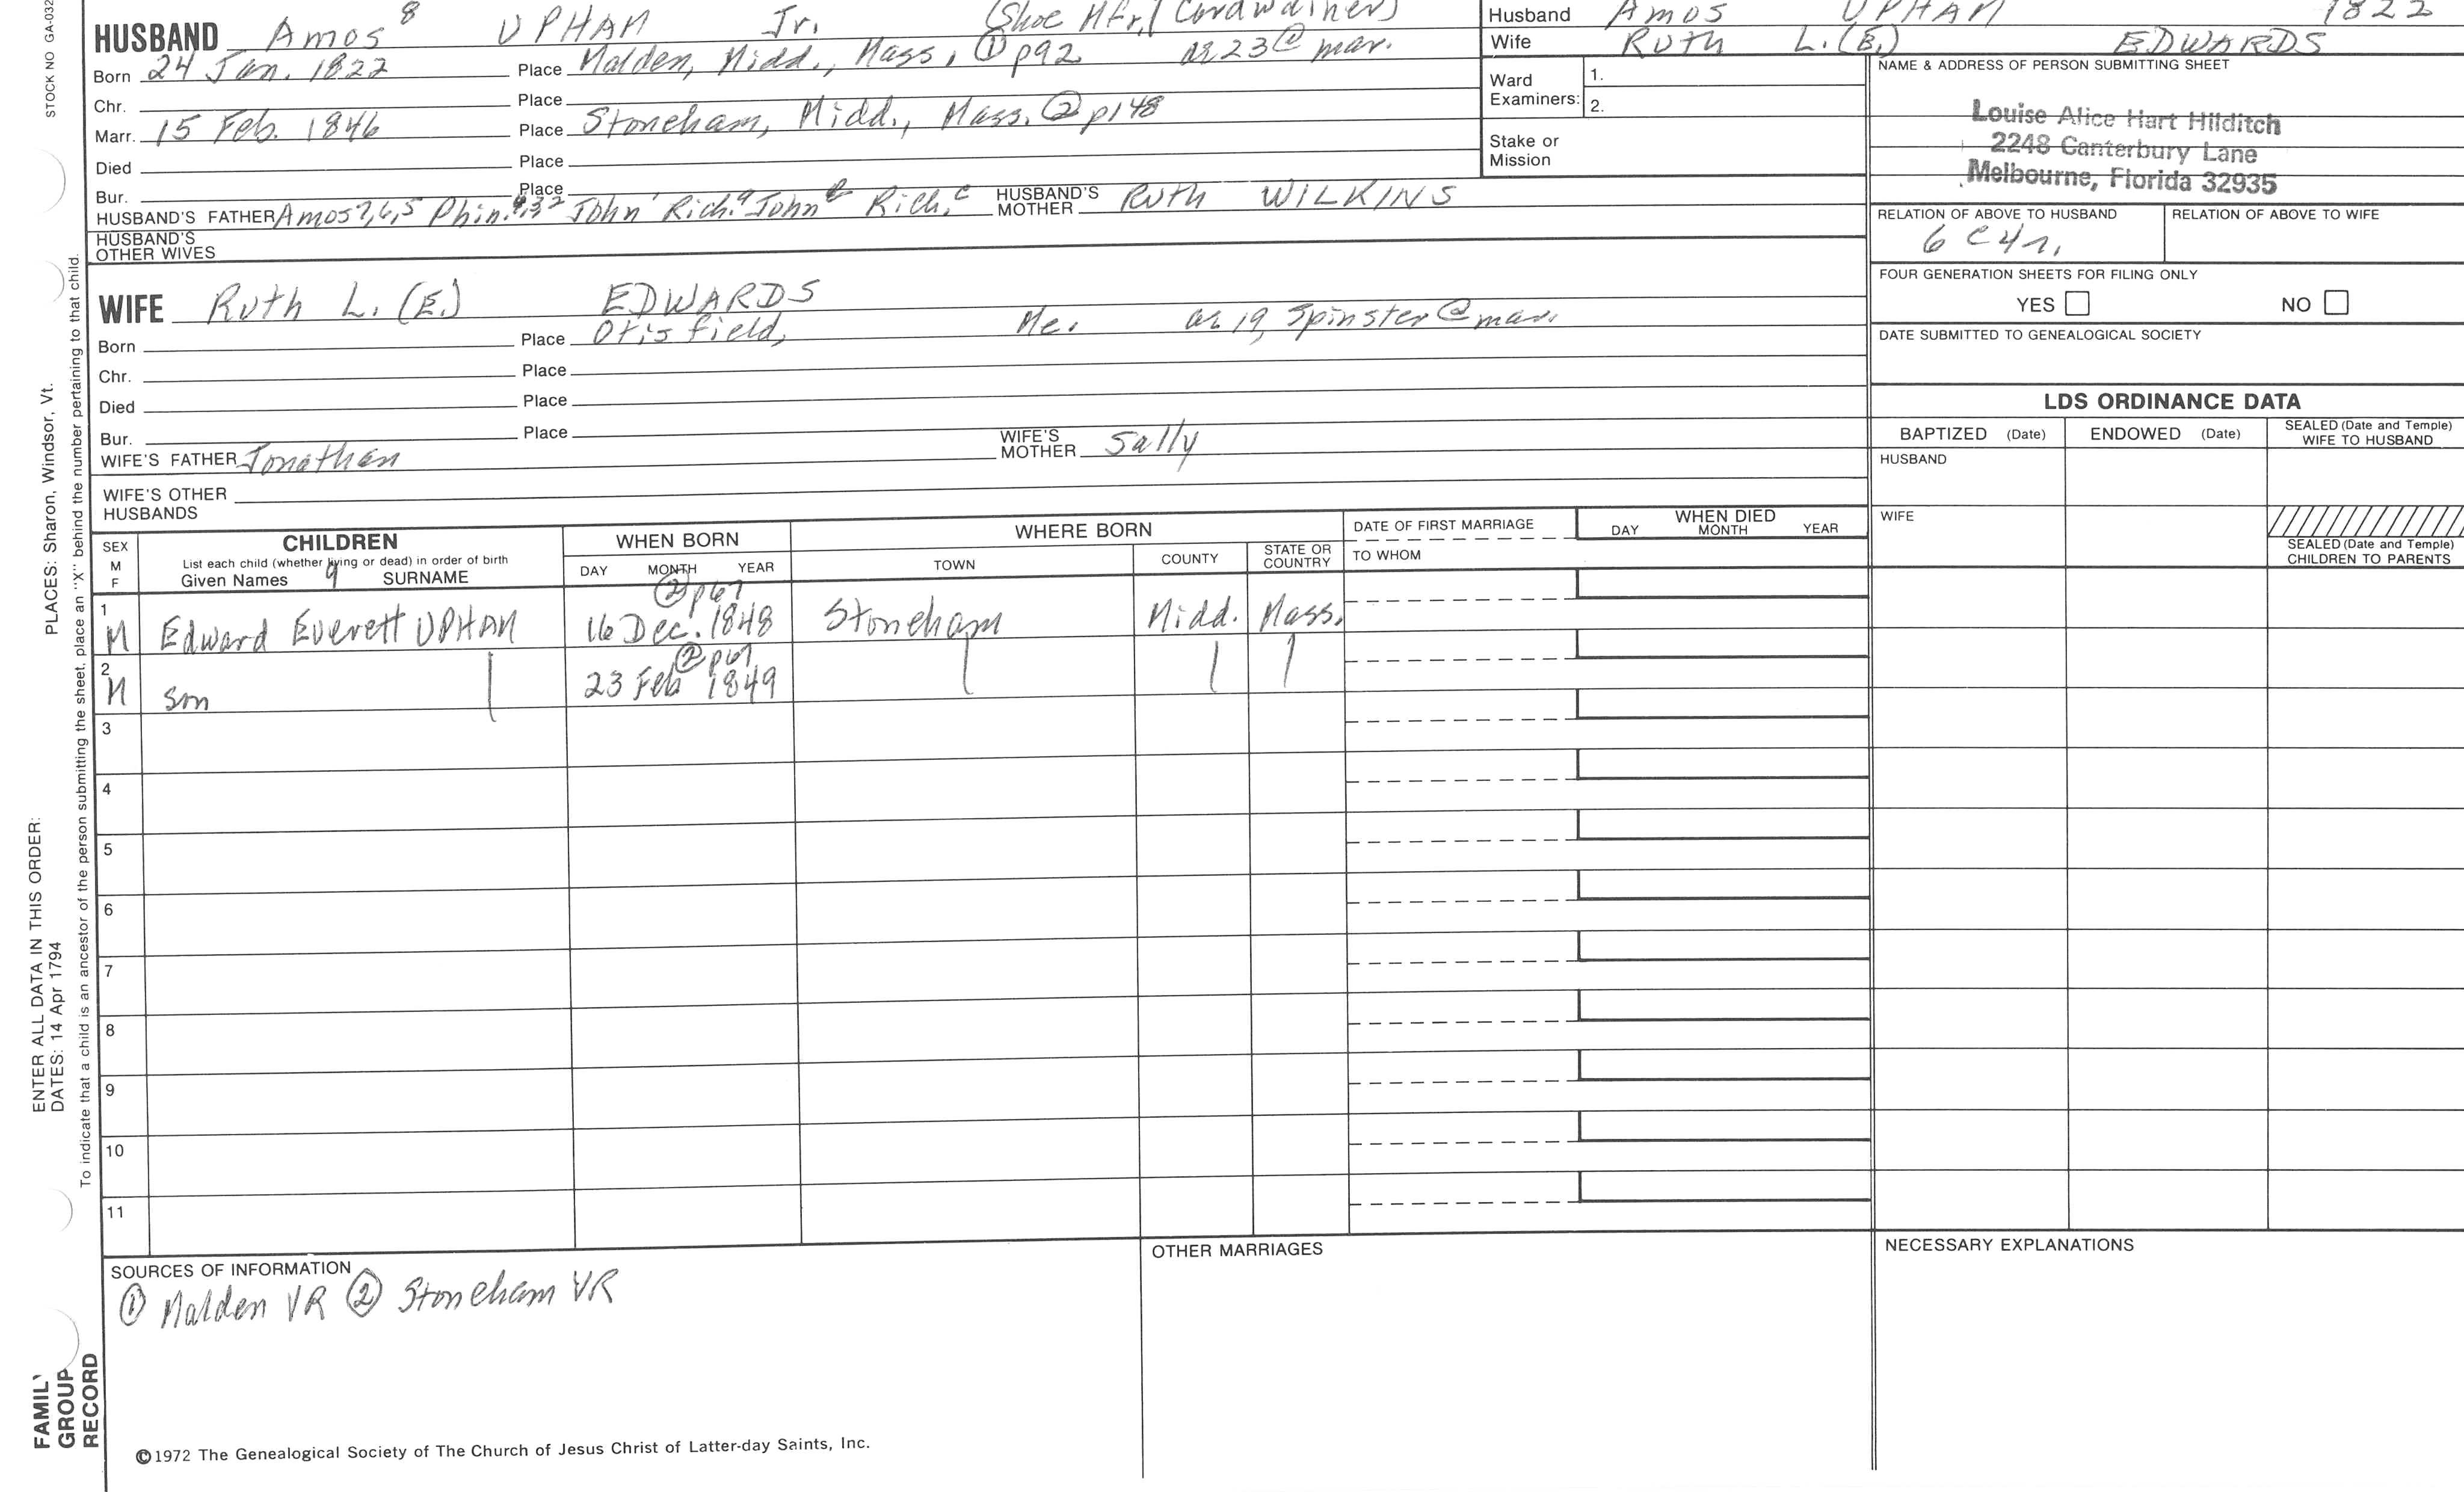 STOCK NO GA-032
HUSBAND Amos 8 UPHAM Jr. (Shoe Mfr. (Cordwainer)
Born 24 Jan. 1822 Place Malden, Midd., Mass. ① p92 ae 23 @ mar.
Chr. Place
Marr. 15 Feb. 1846 Place Stoneham, Midd., Mass. ② p148
Died Place
Bur. Place
HUSBAND'S FATHER Amos 7,6,5 Phin. 4,3,2 John 1 Rich. a John b Rich. c HUSBAND'S MOTHER Ruth WILKINS
HUSBAND'S OTHER WIVES
Husband Amos UPHAM 1822
Wife Ruth L. (E.) EDWARDS
Ward Examiners: 1.
2.
Stake or Mission
NAME & ADDRESS OF PERSON SUBMITTING SHEET
Louise Alice Hart Hilditch
2248 Canterbury Lane
Melbourne, Florida 32935
RELATION OF ABOVE TO HUSBAND RELATION OF ABOVE TO WIFE
6 C 4 r.
FOUR GENERATION SHEETS FOR FILING ONLY
YES NO
DATE SUBMITTED TO GENEALOGICAL SOCIETY
WIFE Ruth L. (E.) EDWARDS
Born Place Otisfield, Me. ae 19, Spinster @ mar.
Chr. Place
Died Place
Bur. Place
WIFE'S FATHER Jonathan WIFE'S MOTHER Sally
WIFE'S OTHER HUSBANDS
LDS ORDINANCE DATA
BAPTIZED (Date) ENDOWED (Date) SEALED (Date and Temple) WIFE TO HUSBAND
HUSBAND
WIFE
SEALED (Date and Temple) CHILDREN TO PARENTS
SEX M F
CHILDREN
List each child (whether living or dead) in order of birth
Given Names 9 SURNAME
WHEN BORN
DAY MONTH YEAR
WHERE BORN
TOWN COUNTY STATE OR COUNTRY
DATE OF FIRST MARRIAGE
TO WHOM
WHEN DIED
DAY MONTH YEAR
② p67
1 M Edward Everett UPHAM 16 Dec. 1848 Stoneham Midd. Mass.
② p67
2 M son 23 Feb 1849
3
4
5
6
7
8
9
10
11
SOURCES OF INFORMATION
① Malden VR ② Stoneham VR
OTHER MARRIAGES
NECESSARY EXPLANATIONS
©1972 The Genealogical Society of The Church of Jesus Christ of Latter-day Saints, Inc.
FAMILY GROUP RECORD
ENTER ALL DATA IN THIS ORDER:
DATES: 14 Apr 1794
PLACES: Sharon, Windsor, Vt.
To indicate that a child is an ancestor of the person submitting the sheet, place an "X" behind the number pertaining to that child.